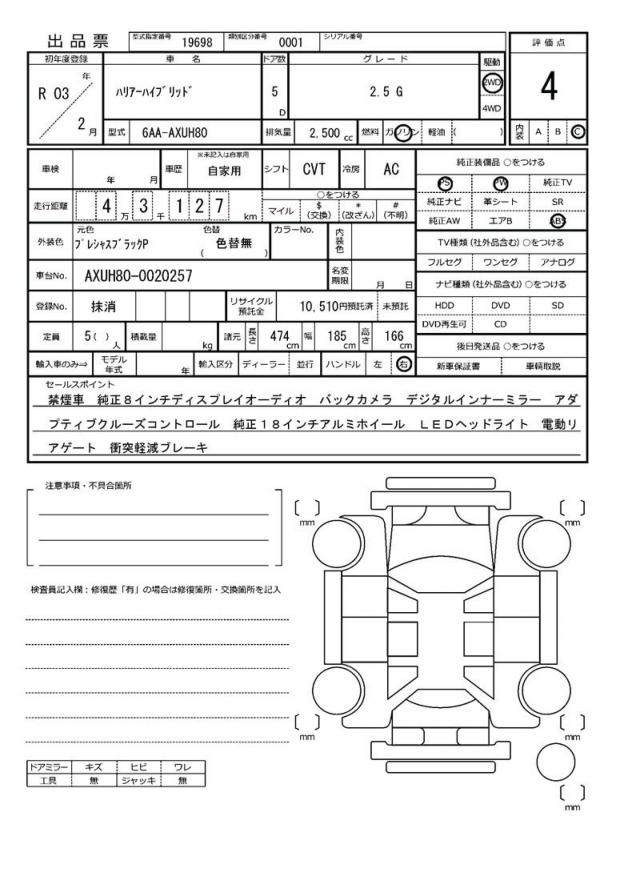 出品票 型式指定番号 19698 類別区分番号 0001 シリアル番号
初年度登録 車名 ドア数 グレード 駆動 評価点
R 03 年 2 月 ハリアーハイブリッド 5 D 2.5 G 2WD 4WD 4
型式 6AA-AXUH80 排気量 2,500 cc 燃料 ガソリン 軽油 ( ) 内装 A B C
車検 年 月 車歴 ※未記入は自家用 自家用 シフト CVT 冷房 AC 純正装備品 ○をつける
PS PW 純正TV
走行距離 4万 3千 1 2 7 km ○をつける マイル $(交換) *(改ざん) #(不明) 純正ナビ 革シート SR
純正AW エアB ABS
外装色 元色 プレシャスブラックP 色替 ( 色替無 ) カラーNo. 内装色 TV種類 (社外品含む) ○をつける
フルセグ ワンセグ アナログ
車台No. AXUH80-0020257 名変期限 月 日 ナビ種類 (社外品含む) ○をつける
登録No. 抹消 リサイクル預託金 10,510円預託済 未預託 HDD DVD SD
DVD再生可 CD
定員 5( ) 人 積載量 kg 諸元 長さ 474 cm 幅 185 cm 高さ 166 cm 後日発送品 ○をつける
輸入車のみ⇒ モデル年式 年 輸入区分 ディーラー 並行 ハンドル 左 右 新車保証書 車輌取説
セールスポイント
禁煙車 純正8インチディスプレイオーディオ バックカメラ デジタルインナーミラー アダ
プティブクルーズコントロール 純正18インチアルミホイール LEDヘッドライト 電動リ
アゲート 衝突軽減ブレーキ
注意事項・不具合箇所
mm mm
検査員記入欄：修復歴「有」の場合は修復箇所・交換箇所を記入
mm mm
ドアミラー キズ ヒビ ワレ
工具 無 ジャッキ 無
mm